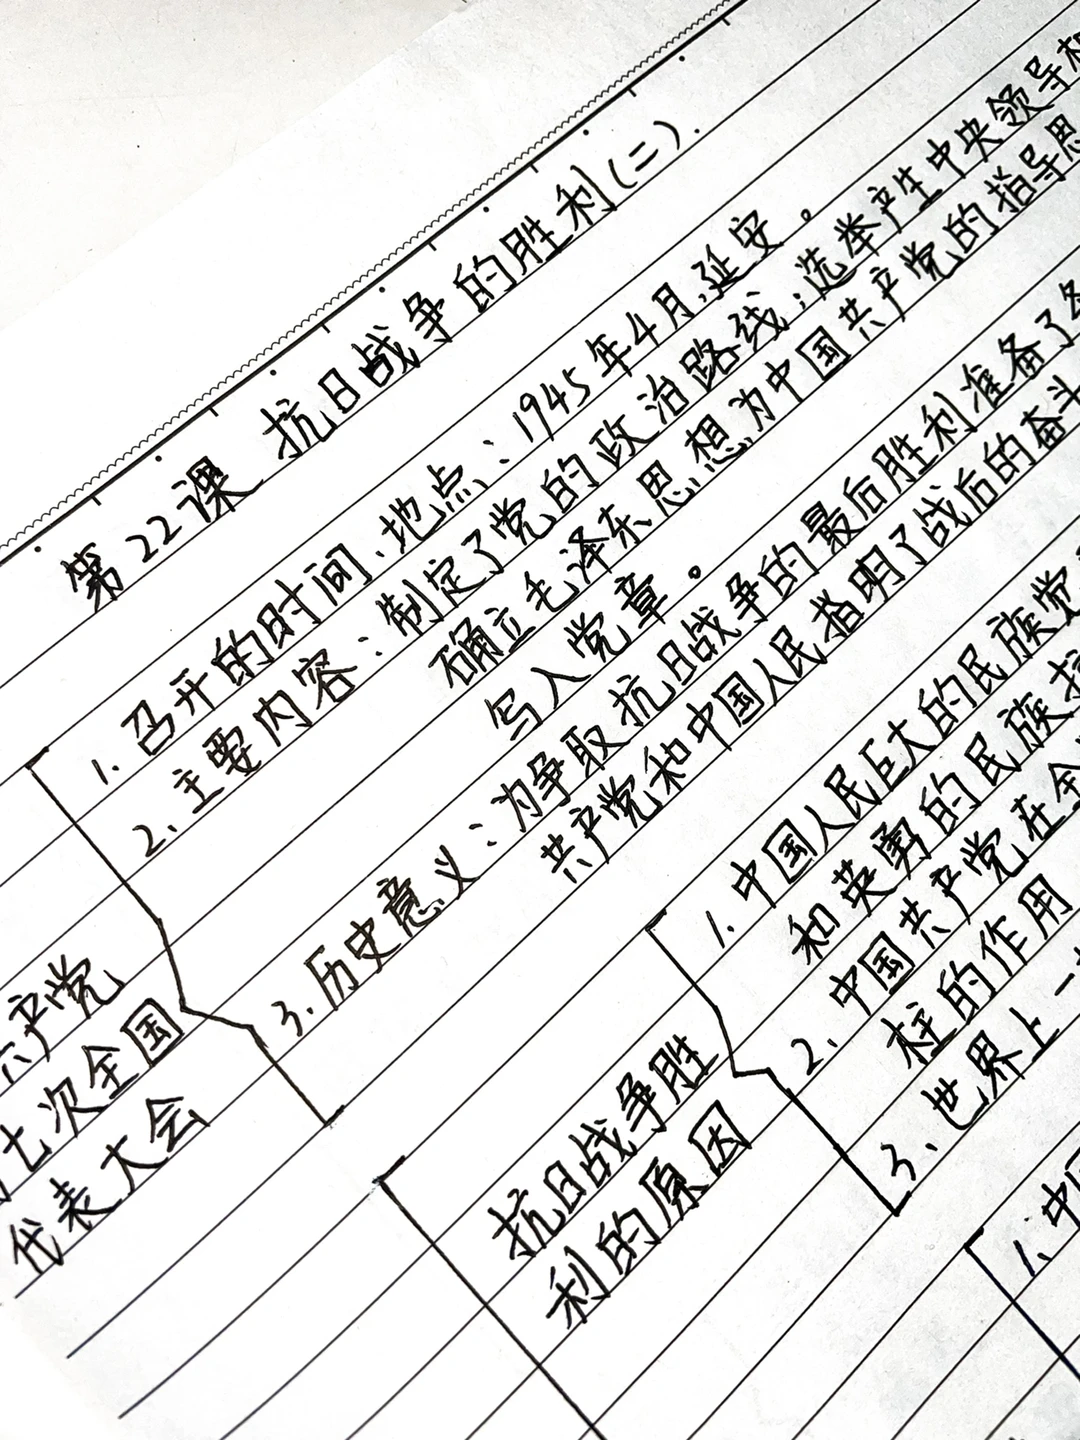 第22课 抗日战争的胜利(二).
1.召开的时间、地点:1945年4月,延安。
2.主要内容:制定了党的政治路线;选举产生中央领导
确立毛泽东思想为中国共产党的指导思
写入党章。
3.历史意义:为争取抗日战争的最后胜利准备了
共产党和中国人民指明了战后的奋斗
产党
七次全国
代表大会
抗日战争胜
利的原因
1.中国人民巨大的民族觉
和英勇的民族抗
2.中国共产党在全
柱的作用
3、世界上一
1、中